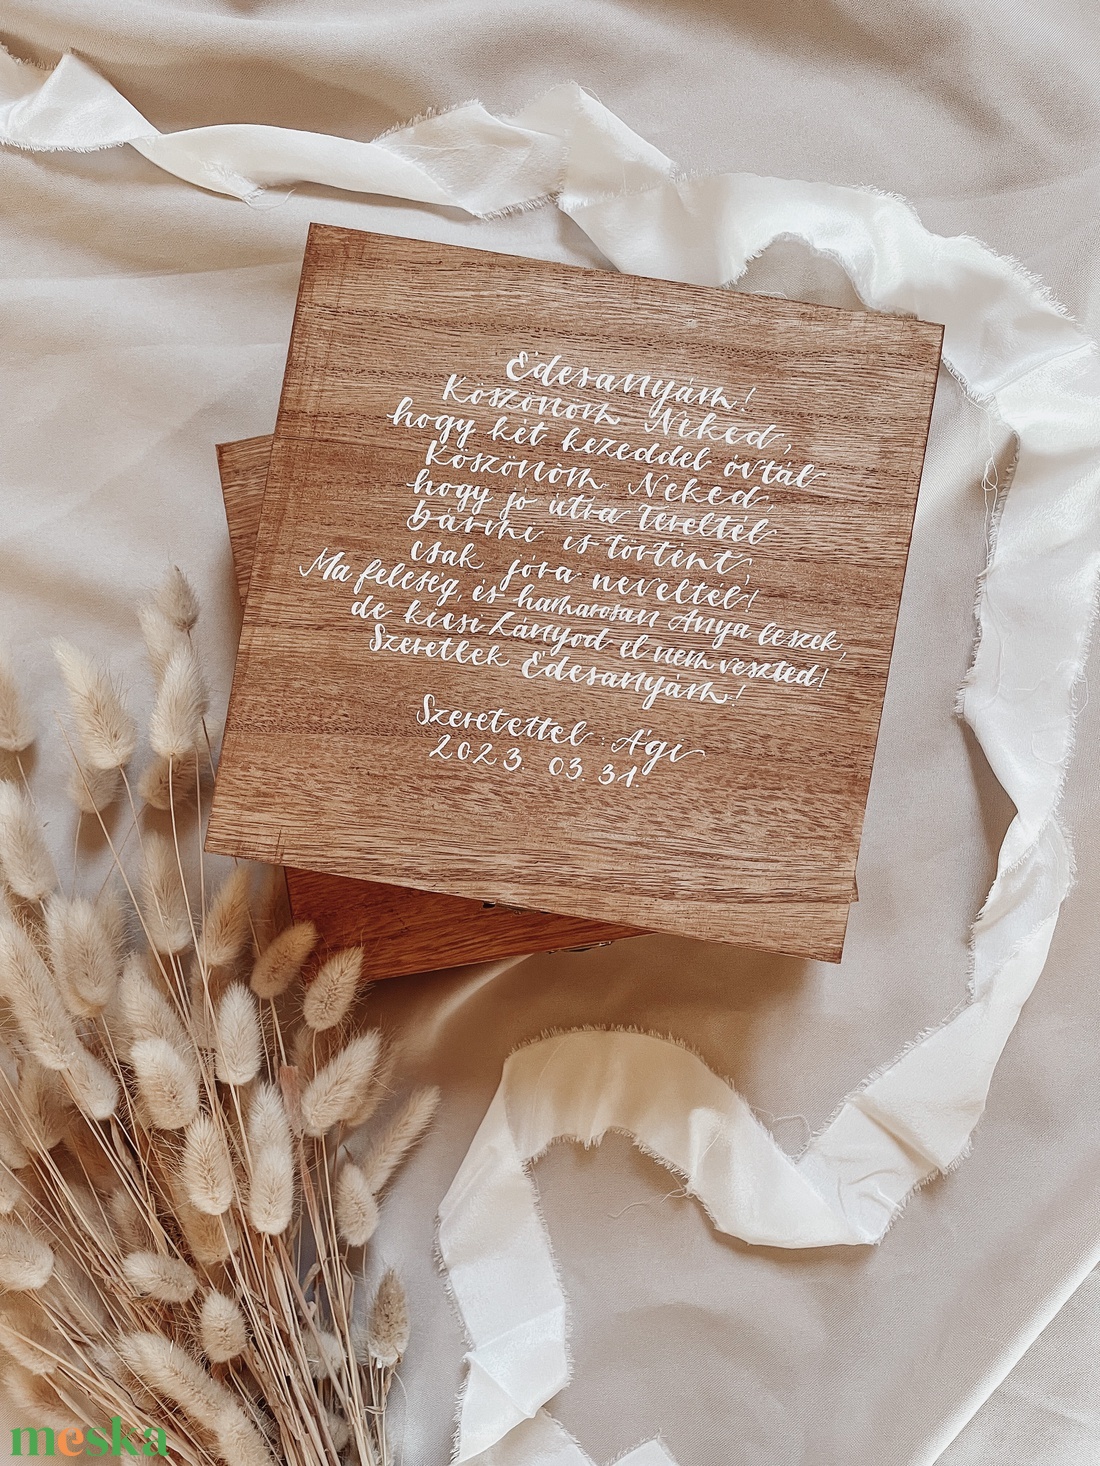 Édesanyám!
Köszönöm Neked,
hogy két kezeddel óvtál
Köszönöm Neked,
hogy jó útra Tereltél
bármi is történt,
csak jóra neveltél!
Ma feleség, és hamarosan Anya leszek,
de kicsi Lányod el nem veszted!
Szeretlek Édesanyám!
Szeretettel: Ági
2023. 03. 31.
meska